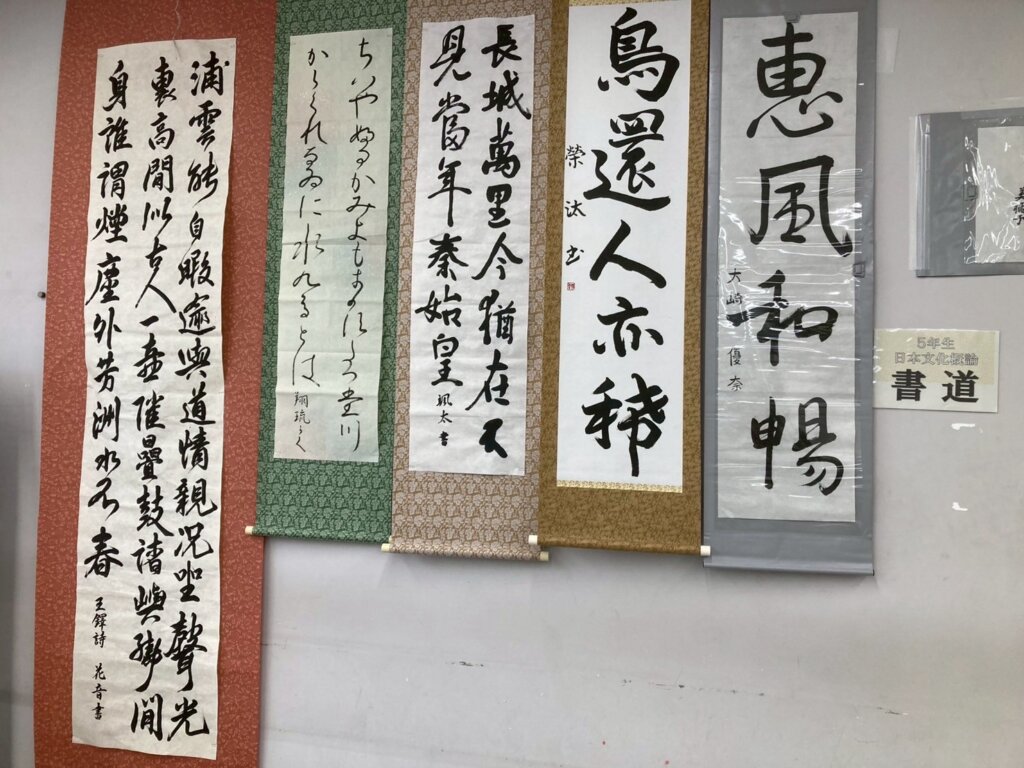 惠風和暢
大崎優奈
鳥還人亦稀
榮汰書
長城萬里今猶在不
見當年秦始皇 颯太書
ちはやふるかみよもきかすたつ堂川
からくれなゐに水九ゝるとは 翔琉かく
浦雲能自暇邃與道情親況坐聲光
裏高閒似古人一壺催疊鼓諸嶼間
身誰謂煙塵外芳洲水不春
王鐸詩 花音書
5年生
日本文化概論
書道